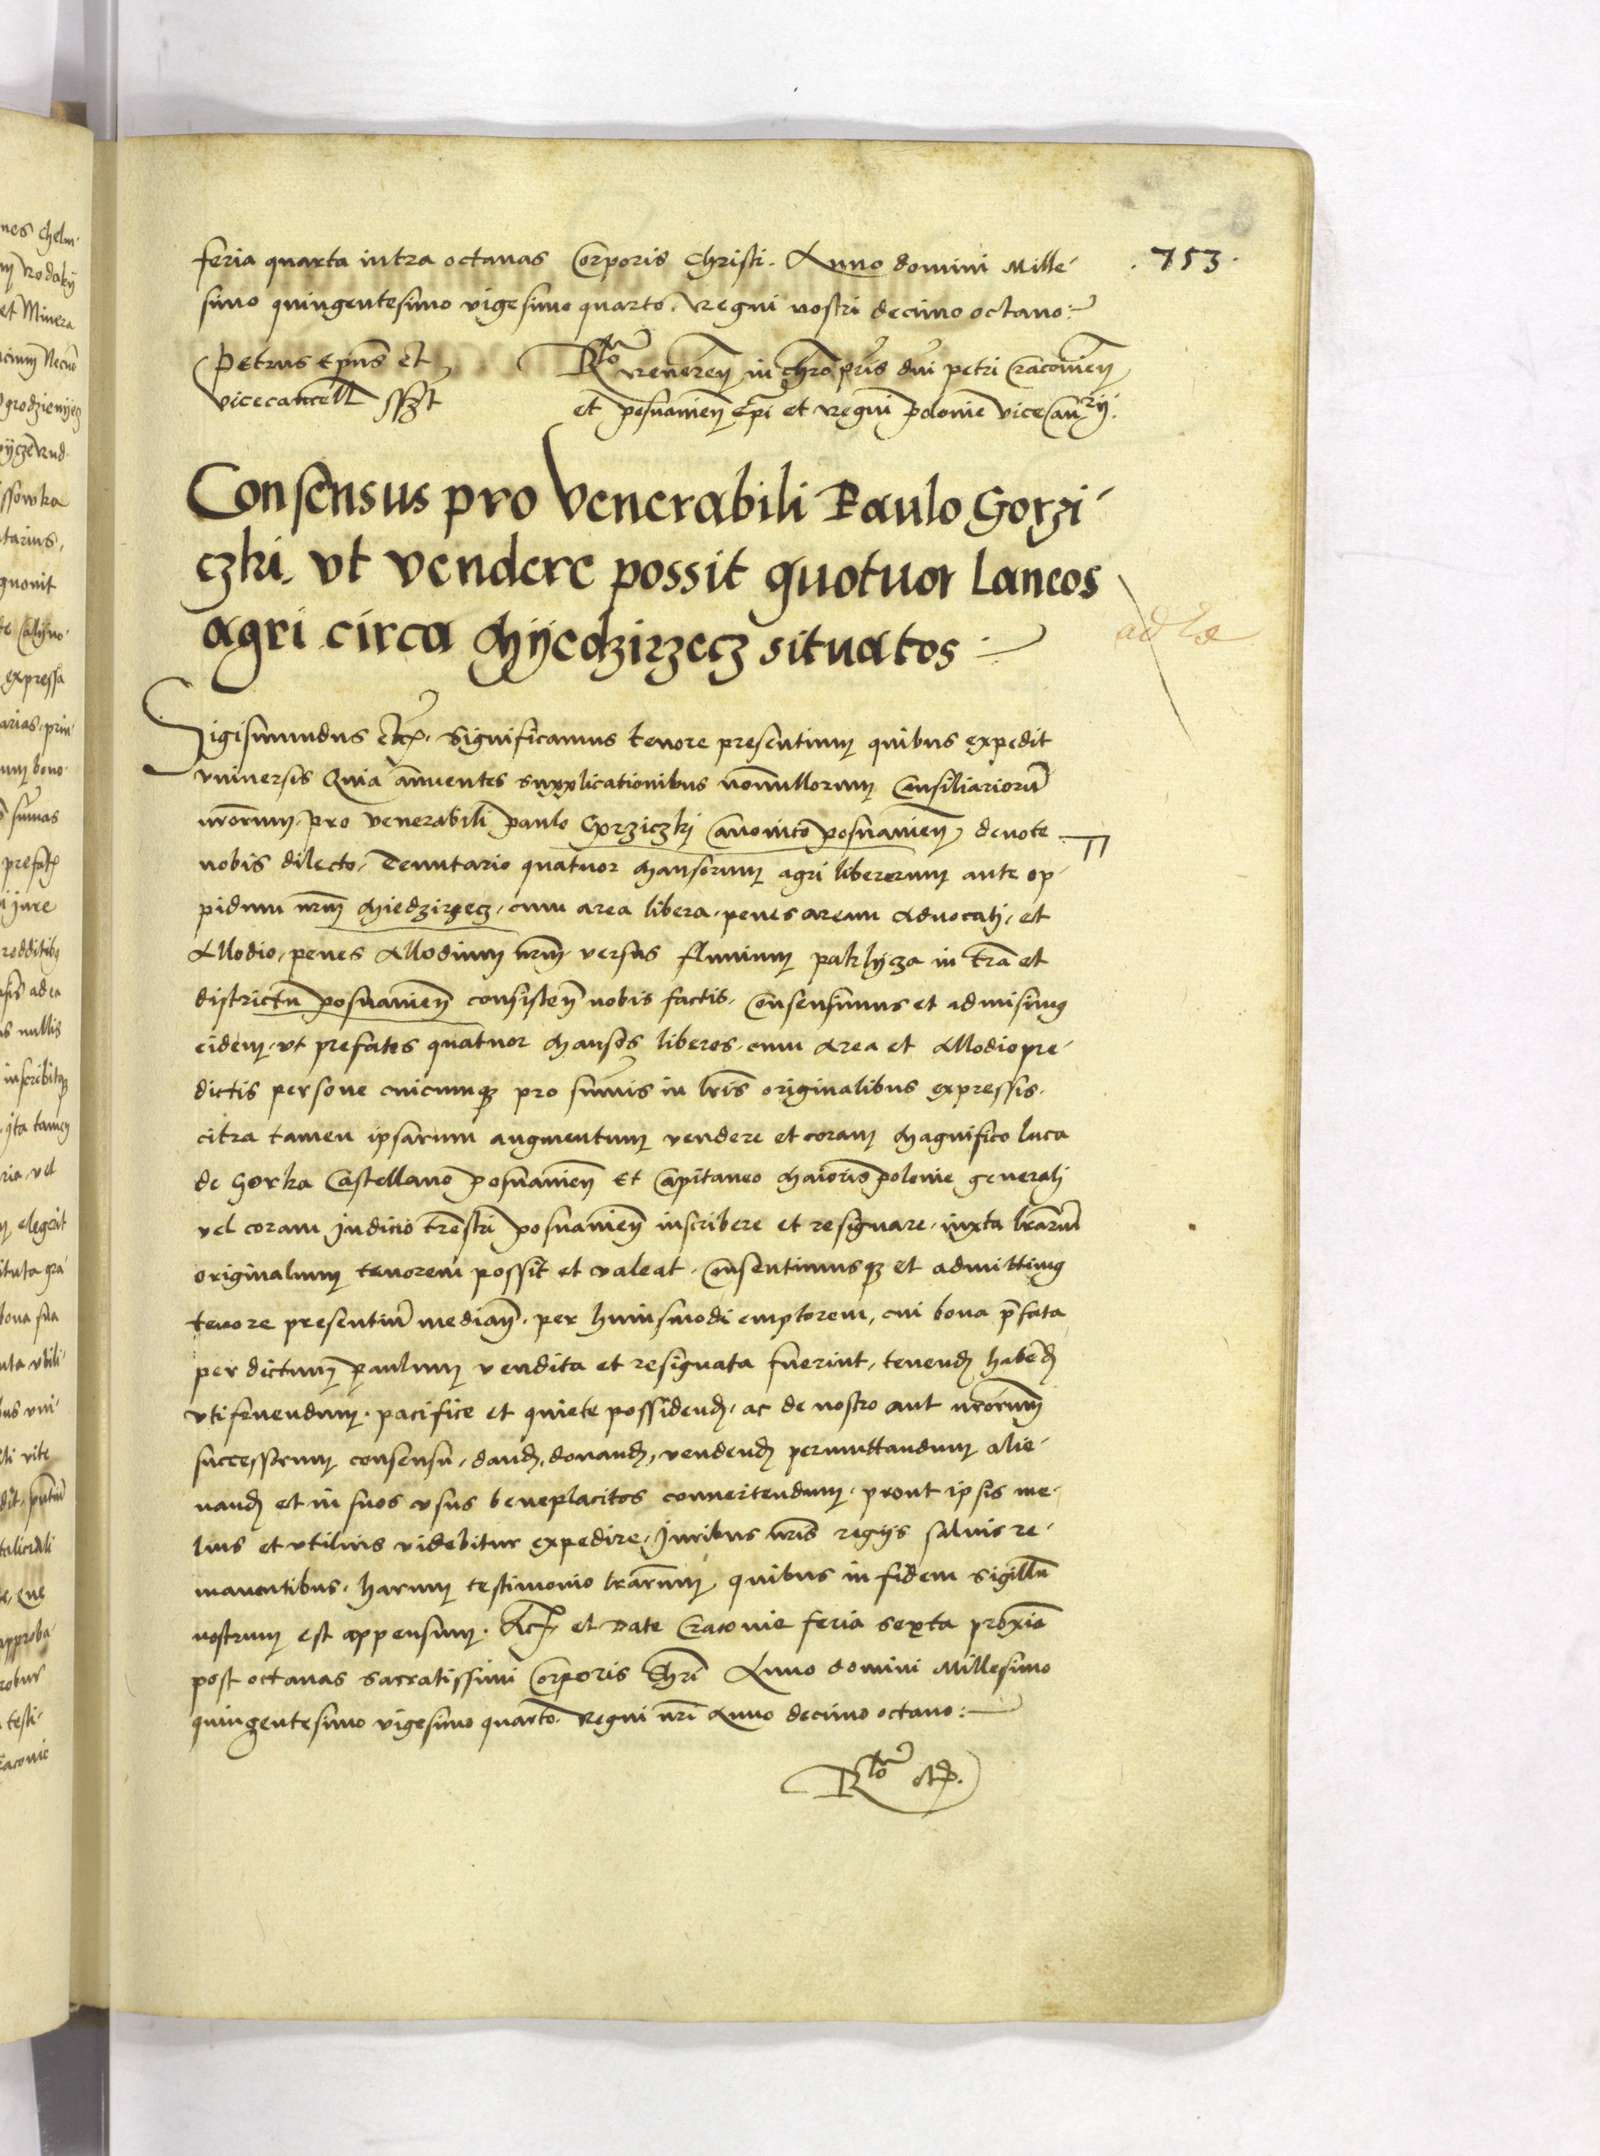 feria quarta intra octauas Corporis Christi. Anno domini Mille-
simo quingentesimo vigesimo quarto. Regni nostri decimo octauo:
.753.
Petrus Epus et
vicecancell sszt
Rlo veneren in chro pris dni petri Cracouien
et posnanien Epi et regni polonie vice Canrij.
Consensus pro Venerabili Paulo Gorzi-
czki. vt vendere possit quotuor Laneos
agri circa Myedzirzecz situatos
ad
Sigismundus etc. Significamus tenore presentium quibus expedit
vniuersis Quia annuentes supplicationibus nonnullorum Consiliarioru
nrorum. pro venerabili paulo Gorziczkj Canonico posnanien deuote
nobis dilecto. Tenutario quatuor mansorum agri liberorum ante op-
pidum nrm Miedzirzecz. cum area libera. penes aream Aduocatj. et
Allodio. penes Allodium nrm versus fluuium paklycza in tra et
districtu posnanien consisten nobis factis. Consensimus et admisimus
eidem. vt prefatos quatuor Mansos liberos. cum Area et Allodio pre-
dictis persone cuicumque pro summis in lris originalibus expressis.
citra tamen ipsarum augmentum vendere et coram Magnifico luca
de Gorka Castellano posnanien Et Capitaneo Maioris polonie generalj
vel coram Judicio trestri posnanien inscribere et resignare. iuxta lrarum
originalium tenorem possit et valeat. Consentimusque et admittimus
tenore presentium median. per huiusmodi emptorem, cui bona pfata
per dictum paulum vendita et resignata fuerint, tenend habend
vtifruendum. pacifice et quiete possidend. ac de nostro aut nrorum
successorum consensu, dand, donand, vendend permuttandum alie-
nand et in suos vsus beneplacitos conuertendum. prout ipsis me-
lius et vtilius videbitur expedire. Juribus nris regijs saluis re-
manentibus. harum testimonio lrarum quibus in fidem sigillu
nostrum est appensum. Act et Date Cracouie feria sexta proxia
post octauas sacratissimi Corporis Chri Anno domini Millesimo
quingentesimo vigesimo quarto. Regni nri Anno decimo octauo:
Rlo etc.